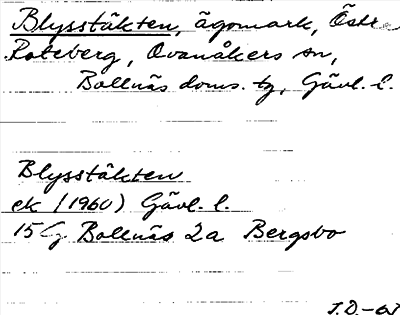 Blysstäkten, ägomark, Östr.
Roteberg, Ovanåkers sn,
Bollnäs doms. tg, Gävl. l.
Blysstäkten
ek (1960) Gävl. l.
15G Bollnäs 2a Bergsbo
J.D.-65